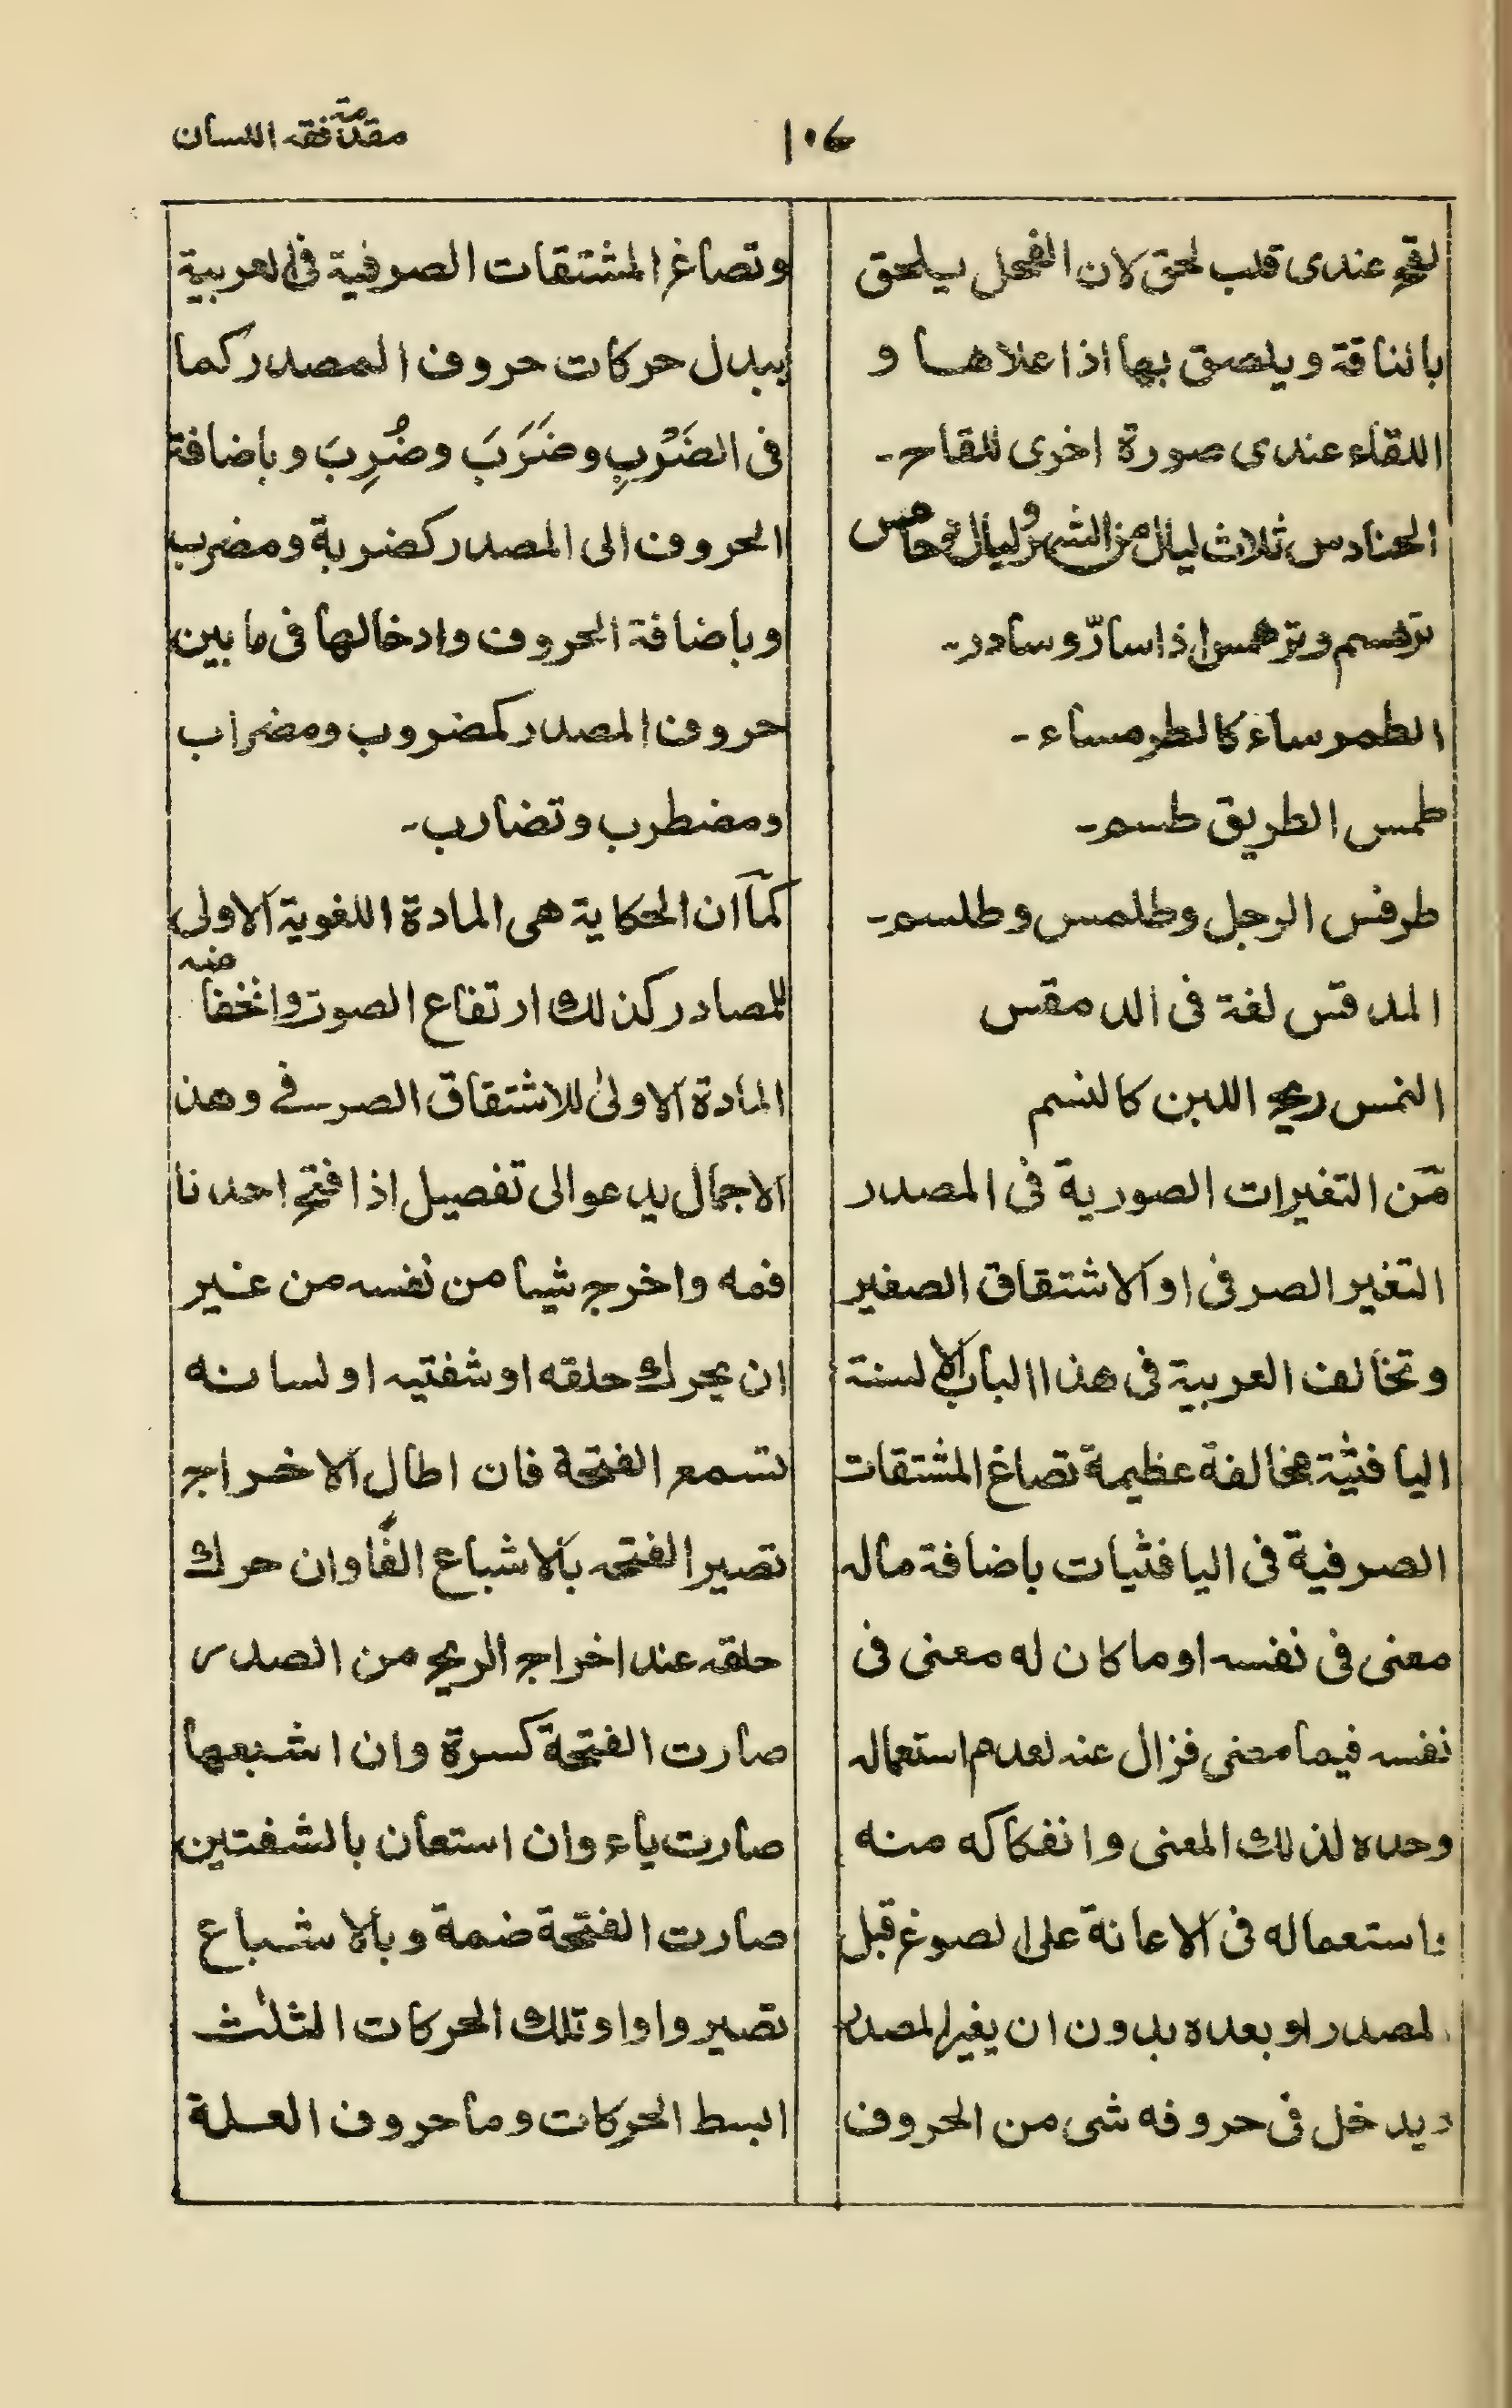 مقدمة فقه اللسان
١٠٦
لقح عندى قلب لحق لان الفحل يلحق
بالناقة ويلصق بها اذا علاها و
اللقاء عندى صورة اخرى للقاح۔
الحنادس ثلاث ليال من الشهر وليال دحامس
ترهسم وترهمس اذا سارّ وساور۔
الطمرساء كالطرمساء۔
طمس الطريق طسم۔
طرفس الرجل وطلمس وطلسم۔
المدقس لغة فى الدمقس
النمس ريح اللبن كالنسم
مّن التغيرات الصورية فى المصدر
التغير الصرفى او الاشتقاق الصغير
وتخالف العربية فى هذا الباب الالسنة
اليافثية مخالفة عظيمة تصاغ المشتقات
الصرفية فى اليافثيات باضافة ماله
معنى فى نفسه او ما كان له معنى فى
نفسه فيما مضى فزال عنه لعدم استعماله
وحده لذلك المعنى وانفكاكه منه
باستعماله فى الاعانة على الصوغ قبل
المصدر او بعده بدون ان يغير المصدر
ويدخل فى حروفه شى من الحروف
وتصاغ المشتقات الصرفية فى العربية
ببدل حركات حروف المصدر كما
فى الضَرْبِ وضَرَبَ وضُرِبَ وباضافة
الحروف الى المصدر كضربة ومضرب
وباضافة الحروف وادخالها فى ما بين
حروف المصدر كمضروب ومضراب
ومضطرب وتضارب۔
كمآ ان الحكاية هى المادة اللغوية الاولى
للمصادر كذلك ارتفاع الصوت وانخفاضه
المادة الاولىٰ للاشتقاق الصرفے وهذ
الاجمال يدعو الى تفصيل اذا فتح احدنا
فمه واخرج شيا من نفسه من غير
ان يحرك حلقه او شفتيه او لسانه
تسمع الفتحة فان اطال الاخراج
تصير الفتحه بالاشباع الفًا وان حرك
حلقه عند اخراج الريح من الصدر
صارت الفتحة كسرة وان اشبعها
صارت ياء وان استعان بالشفتين
صارت الفتحة ضمة وبالاشباع
تصير واوا وتلك الحركات الثلٰث
ابسط الحركات وما حروف العلة